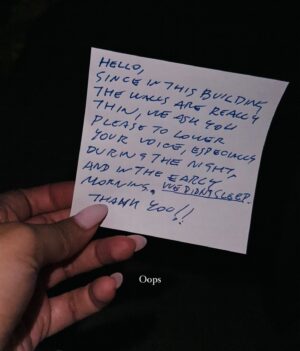 HELLO,
SINCE IN THIS BUILDING
THE WALLS ARE REALLY
THIN, WE ASK YOU
PLEASE TO LOWER
YOUR VOICE, ESPECIALLY
DURING THE NIGHT,
AND IN THE EARLY
MORNING. WE DIDN'T SLEEP.
THANK YOU!!
Oops